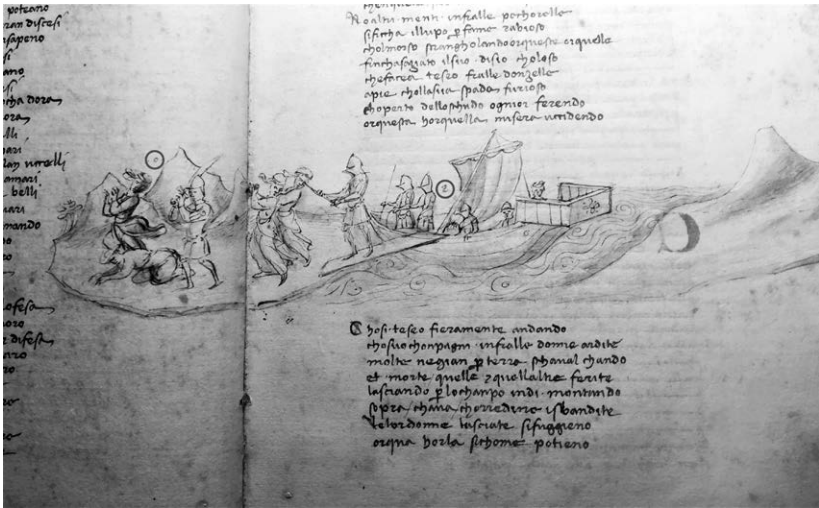 poteano
ran discesi
nsapeno
si
ano
si
cha dora
ora
lli
nari
lan uccelli
amari
belli
uari
mando
to
ro
ofesa
oro
r difesa
aro
ro
No altri menti infralle pechorelle
sificcha illupo p fame rabioso
cholmorso strangholando orqueste oquelle
finchasaziato ilsuo disio choloso
chefacea teseo fralle donzelle
apie chollasua spada furioso
choperto delloschudo ognior ferendo
orquesta horquella misera uccidendo
2
Chosi teseo fieramente andando
chosuo chonpagni infralle donne ardite
molte negian p terra schaval chando
et morte quelle quellaltre ferite
lasciando p lochanpo indi montando
sopra chava chorredine isbandite
lelordonne lasciate sifuggieno
orqua horla sichome potieno